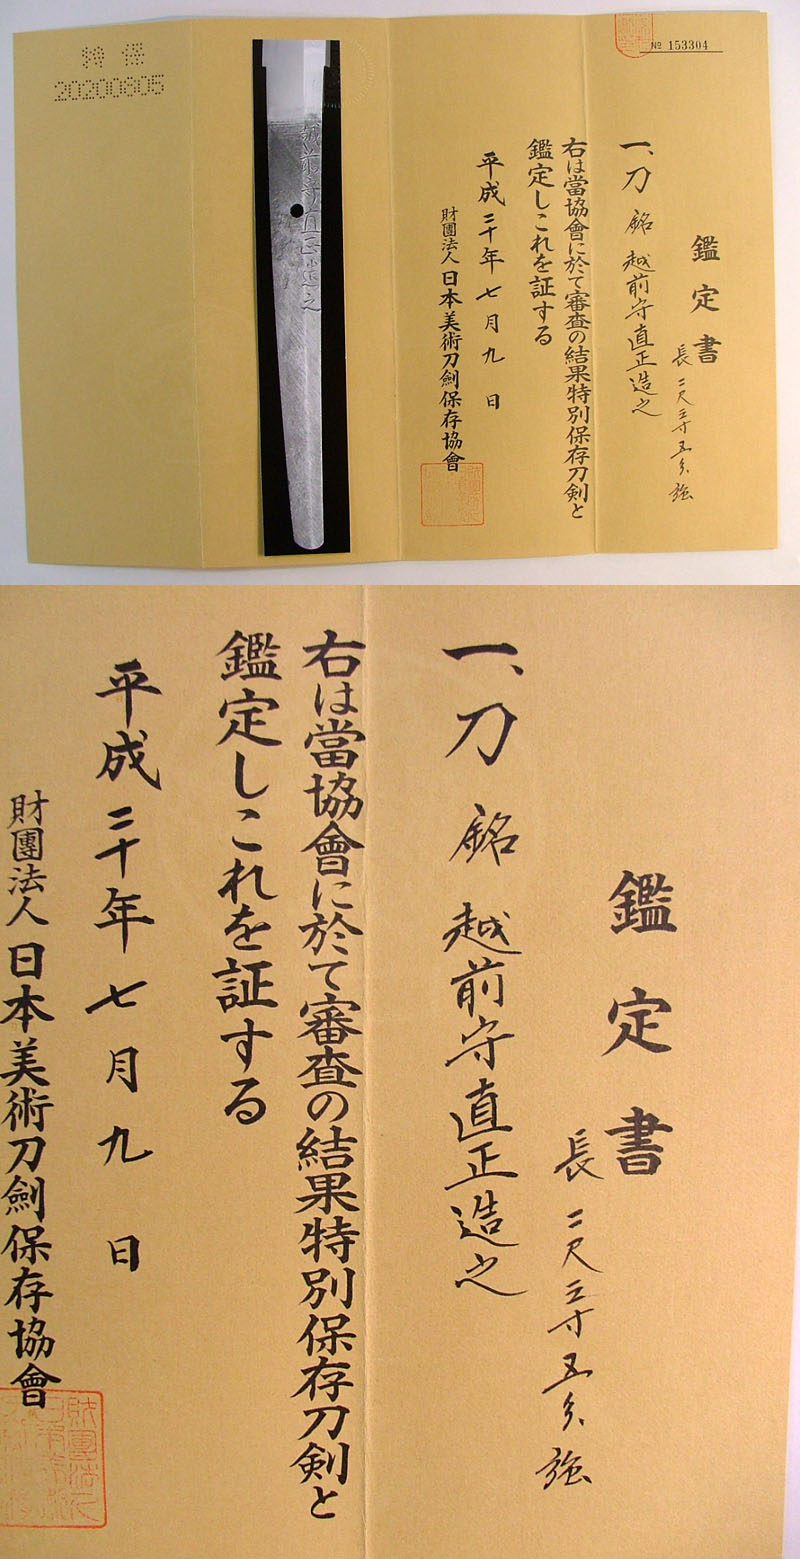 特保
20200805
№ 153304
鑑定書
一、刀 銘 越前守直正造之
長二尺三寸五分強
右は當協會に於て審査の結果特別保存刀剣と
鑑定しこれを証する
平成二十年七月九日
財團法人日本美術刀劍保存協會
越前守直正造之
鑑定書
一、刀 銘 越前守直正造之
長二尺三寸五分強
右は當協會に於て審査の結果特別保存刀剣と
鑑定しこれを証する
平成二十年七月九日
財團法人日本美術刀劍保存協會